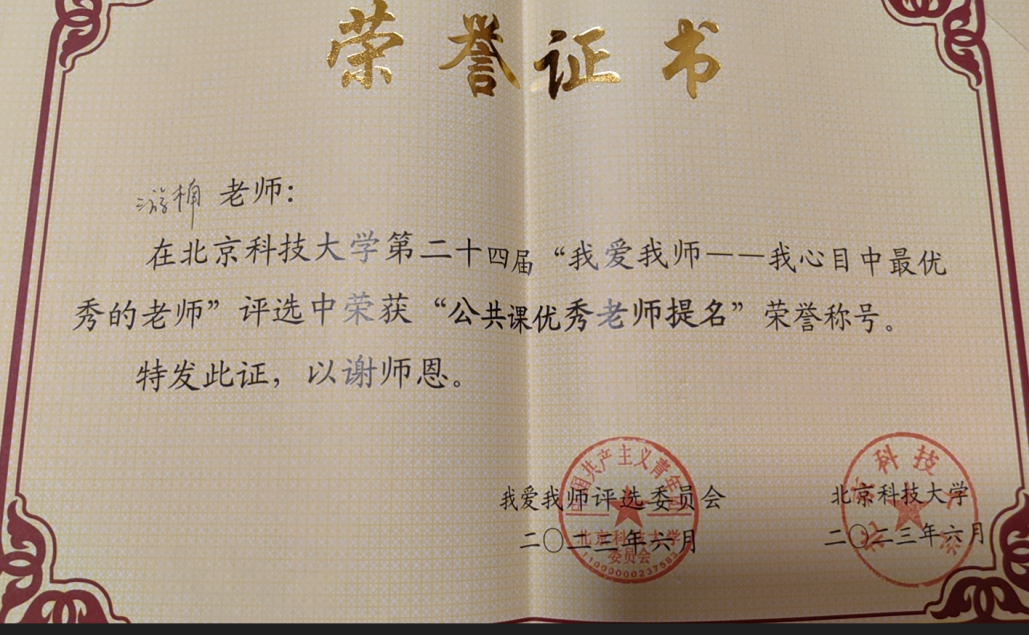 荣誉证书
游楠 老师：
在北京科技大学第二十四届“我爱我师——我心目中最优
秀的老师”评选中荣获“公共课优秀老师提名”荣誉称号。
特发此证，以谢师恩。
我爱我师评选委员会
二〇二三年六月
中国共产主义青年团
北京科技大学
委员会
北京科技大学
二〇二三年六月
北京科技大学